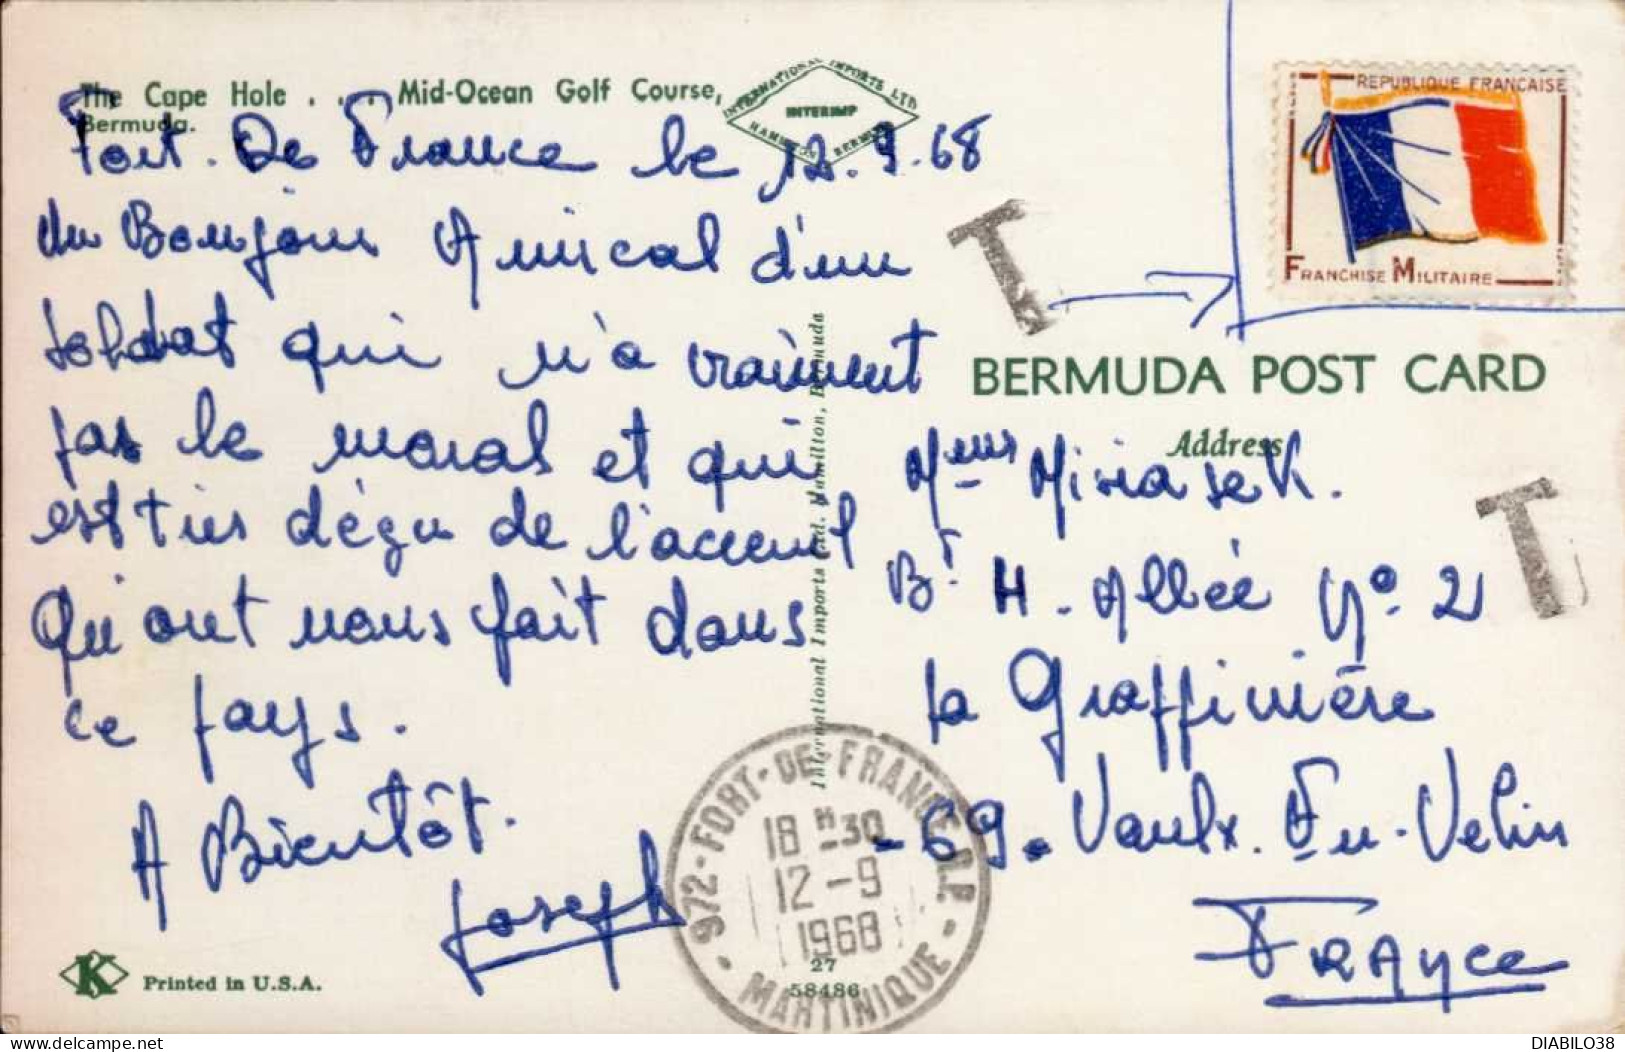 The Cape Hole . . . Mid-Ocean Golf Course,
Bermuda.
INTERNATIONAL IMPORTS LTD
INTERIMP
HAMILTON BERMUDA
Fort. De France le 12.9.68
un Bonjour Amical d'un
soldat qui n'a vraiment
pas le moral et qui
est très déçu de l'acceuil
Qu'ont nous fait dans
ce pays.
A Bientôt.
Joseph
K Printed in U.S.A.
International Imports Ltd. Hamilton, Bermuda
27
58486
REPUBLIQUE FRANÇAISE
FRANCHISE MILITAIRE
T
BERMUDA POST CARD
Address
T
Bt. H. Allée No. 2
la Graffinière
-69. Vaulx. En. Velin
FRANCE
972-FORT-DE-FRANCE R.P.
18 H -30
12-9
1968
- MARTINIQUE -
DIABILO38
delcampe.net